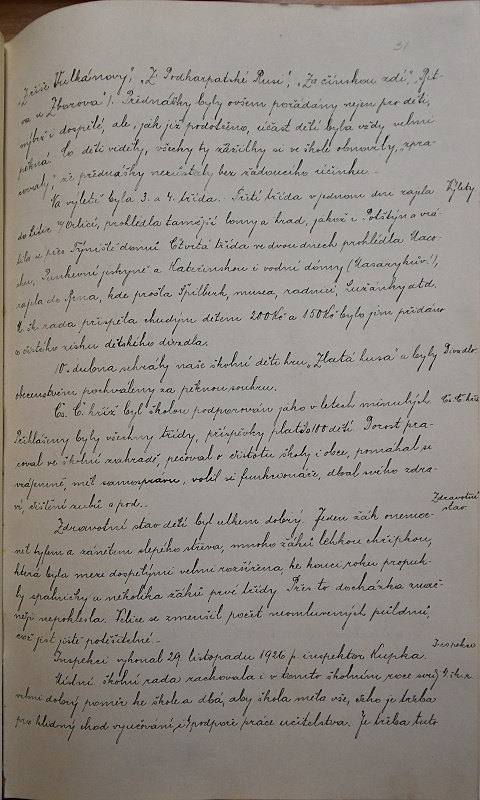 31
„Z říše Vulkánovy", „Z Podkarpatské Rusi", „Za čínskou zdí", „Bit-
va u Zborova"). Přednášky byly ovšem pořádány nejen pro děti,
nýbrž i dospělé, ale, jak již podotčeno, účast dětí byla vždy velmi
pěkná. Co děti viděly, všechny ty zážitky si ve škole obnovily, zpra-
covaly, že přednášky nezůstaly bez žádoucího účinku. -
Na výletě byla 3. a 4. třída. - Třetí třída v jednom dni zajela Výlety
do Litic n/Orlicí, prohlédla tamější lomy a hrad, jakož i Potštýn a vrá-
tila se přes Týniště domů. Čtvrtá třída ve dvou dnech prohlédla Maco-
chu, Punkevní jeskyně a Kateřinskou i vodní dómy (Masarykův!),
zajela do Brna, kde prošla Špilberk, musea, radnici, Lužánky atd.
M. šk. rada přispěla chudým dětem 200 Kč a 150 Kč bylo jim přidáno
z čistého zisku dětského divadla.
10. dubna sehrály naše školní děti hru „Zlatá husa" a byly Divadlo
obecenstvem pochváleny za pěknou souhru.
Čs. Č. kříž byl školou podporován jako v letech minulých. Čs. Č. kříž
Přihlášeny byly všechny třídy, příspěvky platilo 100 dětí. Dorost pra-
coval ve školní zahradě, pečoval o čistotu školy i obce, pomáhal si
vzájemně, měl samosprávu, volil si funkcionáře, dbal svého zdra-
ví, čištění zubů a pod. -
Zdravotní stav dětí byl celkem dobrý. Jeden žák onemoc- Zdravotní stav
něl tyfem a zánětem slepého střeva, mnoho žáků lehkou chřipkou,
která byla mezi dospělými velmi rozšířena, ke konci roku propuk-
ly spalničky u několika žáků prvé třídy. Přes to docházka znač-
něji nepoklesla. Velice se zmenšil počet neomluvených půldnů,
což jest jistě potěšitelné. -
Inspekci vykonal 29. listopadu 1926 p. inspektor Kupka. Inspekce
Místní školní rada zachovala i v tomto školním roce svůj M. šk. r.
velmi dobrý poměr ke škole a dbá, aby škola měla vše, čeho je třeba
pro hladný chod vyučování, i k podpoře práce učitelstva. Je třeba tuto